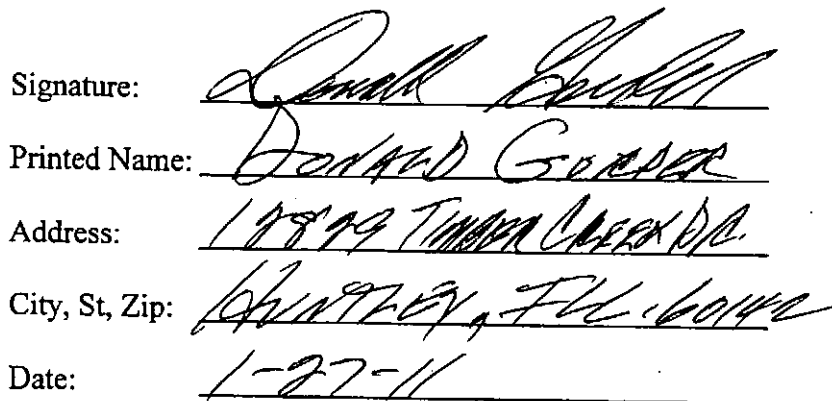 Signature: Donald
Printed Name: DONALD
Address: 12829 TIMBER CREEK DR.
City, St, Zip: HUNTLEY, ILL. 60142
Date: 1-27-11